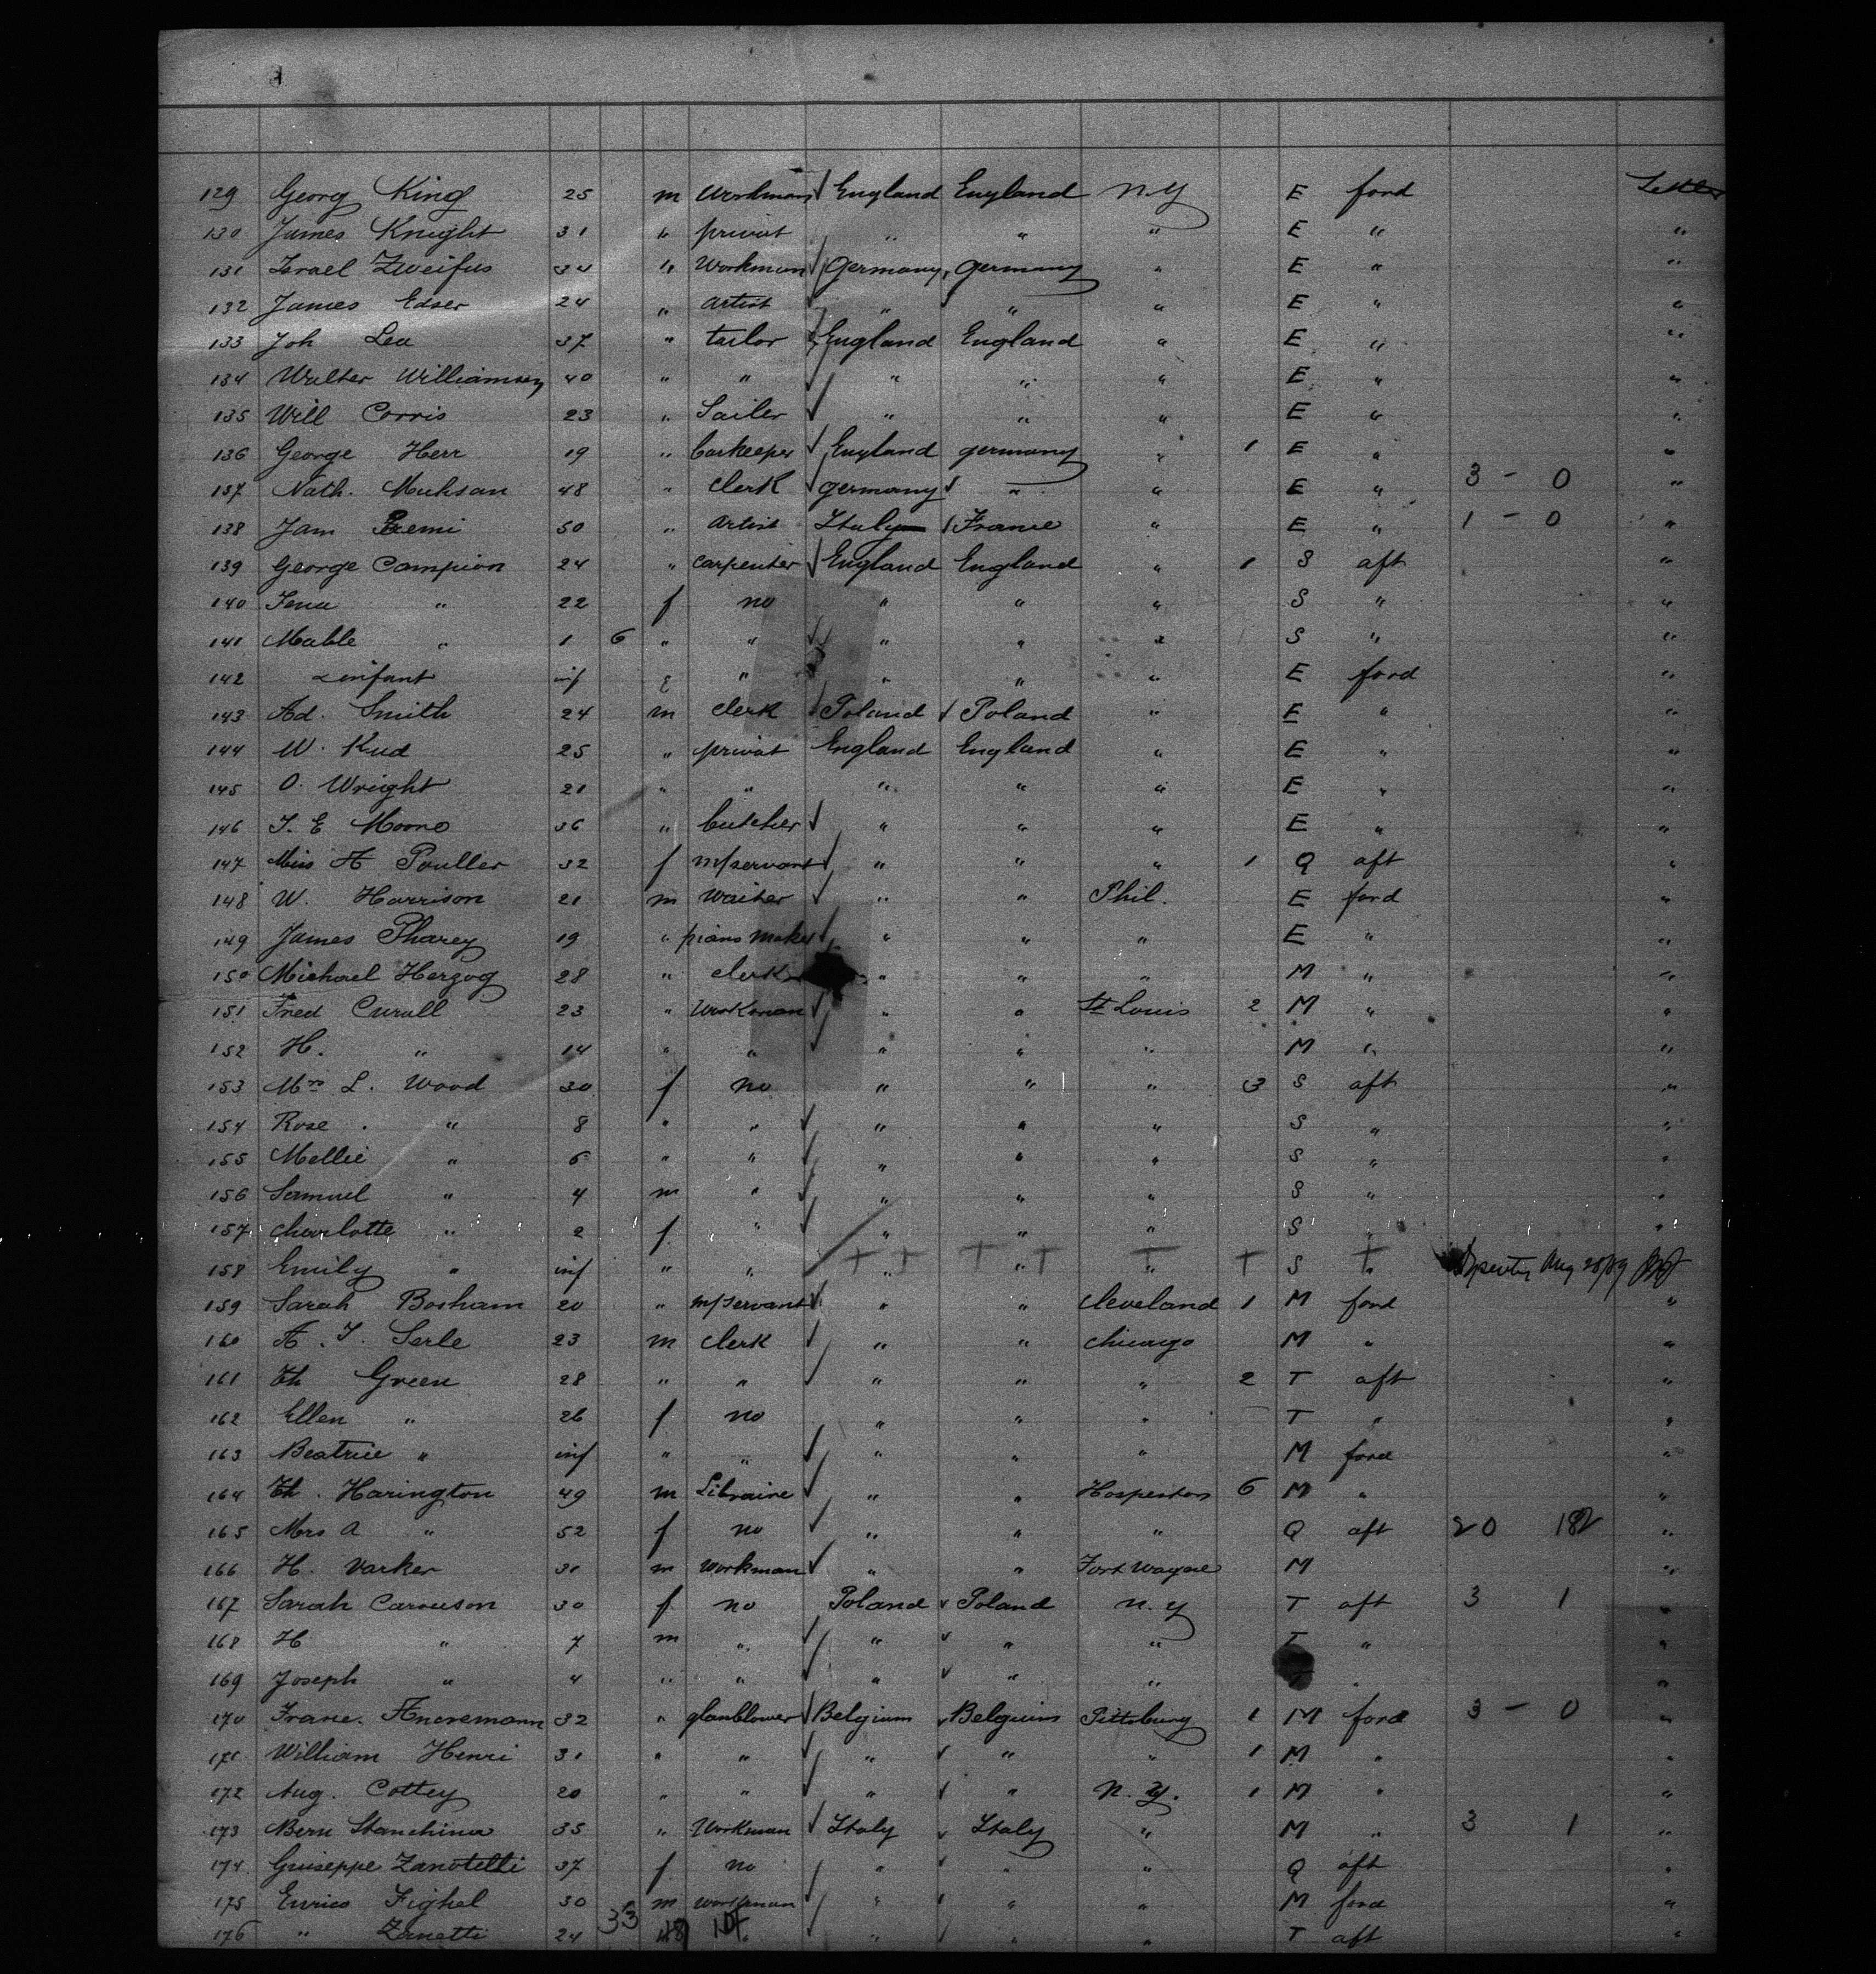 129 Georg King 25 m Workman England England N.Y E ford Settler
130 James Knight 31 " privat " " " E " "
131 Israel Zweifus 34 " Workman Germany Germany " E " "
132 James Edser 24 " artist " " " E " "
133 Joh Lea 37 " tailor England England " E " "
134 Walter Williamson 40 " " " " " E " "
135 Will Corris 23 " Sailer " " " E " "
136 George Herr 19 " barkeeper England germany " 1 E " "
137 Nath. 48 " clerk germany " " E " 3 - 0 "
138 Jam 50 " Artist Italy France " E " 1 - 0 "
139 George Campion 24 " carpenter England England " 1 S aft "
140 Jena " 22 f no " " " S " "
141 Mable " 1 6 " " " " " S " "
142 infant inf " " " " E ford "
143 Ad. Smith 24 m clerk Poland Poland " E " "
144 W. Kud 25 " privat England England " E " "
145 O. Wright 21 " " " " " E " "
146 J. E Moono 36 " butcher " " " E " "
147 Miss A Poulter 32 f m/servant " " " 1 Q aft "
148 W. Harrison 21 m Waiter " " Phil. E ford "
149 James Pharey 19 " piano maker " " " E " "
150 Michael Herzog 28 " clerk " " " M " "
151 Fred Curall 23 " Workman " " St Louis 2 M " "
152 H. " 14 " " " " " M " "
153 Mrs L. Wood 30 f no " " " 3 S aft "
154 Rose " 8 " " " " " S " "
155 Mellie " 6 " " " " " S " "
156 Samuel " 4 m " " " " S " "
157 charlotte " 2 f " " " " S " "
158 Emily " inf " " " " " S " Aug 28/89
159 Sarah Bosham 20 " m/servant " " cleveland 1 M ford "
160 A. J. Serle 23 m clerk " " chicago M " "
161 Th Green 28 " " " " " 2 T aft "
162 Ellen " 26 f no " " " T " "
163 Beatrice " inf " " " " " M ford "
164 Th. Harington 49 m Libraire " " 6 M " "
165 Mrs A " 52 f no " " " Q aft 20 182 "
166 H. Varker 31 m workman " " Fort Wayne M "
167 Sarah Carouson 30 f no Poland Poland N.Y T aft 3 1 "
168 H " 7 m " " " " T " "
169 Joseph " 4 " " " " " " "
170 Franc. 32 " glassblower Belgium Belguim Pittsburg 1 M ford 3 - 0 "
171 William Henri 31 " " " " " 1 M " "
172 Aug. Cottey 20 " " " " N.Y. 1 M " "
173 Bern Stanchina 35 " Workman Italy Italy " M " 3 1 "
174 Guiseppe Zanotelli 37 f no " " " Q aft "
175 Enrico Fighel 30 m workman " " " M ford "
176 " Zanetti 24 33 " " " " T aft "